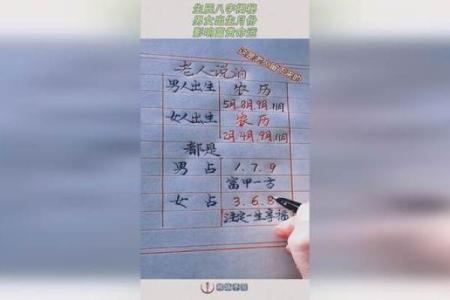 生辰八字揭秘
男女出生月份
影响富贵命运
老人说的
男人出生 农历
5月8月9月11月
女人出生 农历
2月4月9月11月
都是
男 占 1.7.9
富甲一方
女 占 3.6.8
注定一生享福